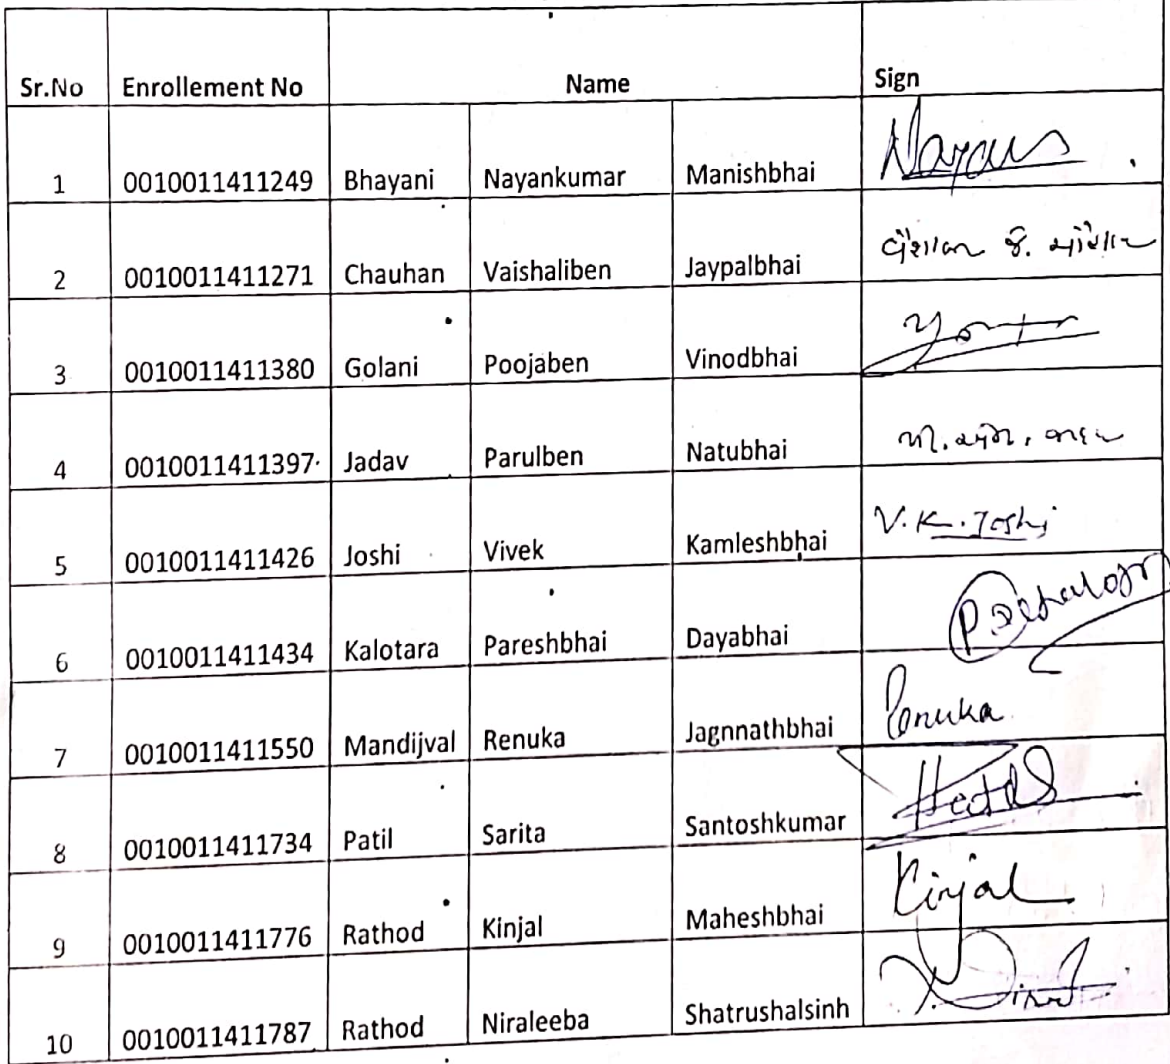 Sr.No Enrollement No Name Sign
1 0010011411249 Bhayani Nayankumar Manishbhai
2 0010011411271 Chauhan Vaishaliben Jaypalbhai
3 0010011411380 Golani Poojaben Vinodbhai
4 0010011411397 Jadav Parulben Natubhai
5 0010011411426 Joshi Vivek Kamleshbhai V.K.Joshi
6 0010011411434 Kalotara Pareshbhai Dayabhai
7 0010011411550 Mandijval Renuka Jagnnathbhai Renuka
8 0010011411734 Patil Sarita Santoshkumar
9 0010011411776 Rathod Kinjal Maheshbhai Kinjal
10 0010011411787 Rathod Niraleeba Shatrushalsinh